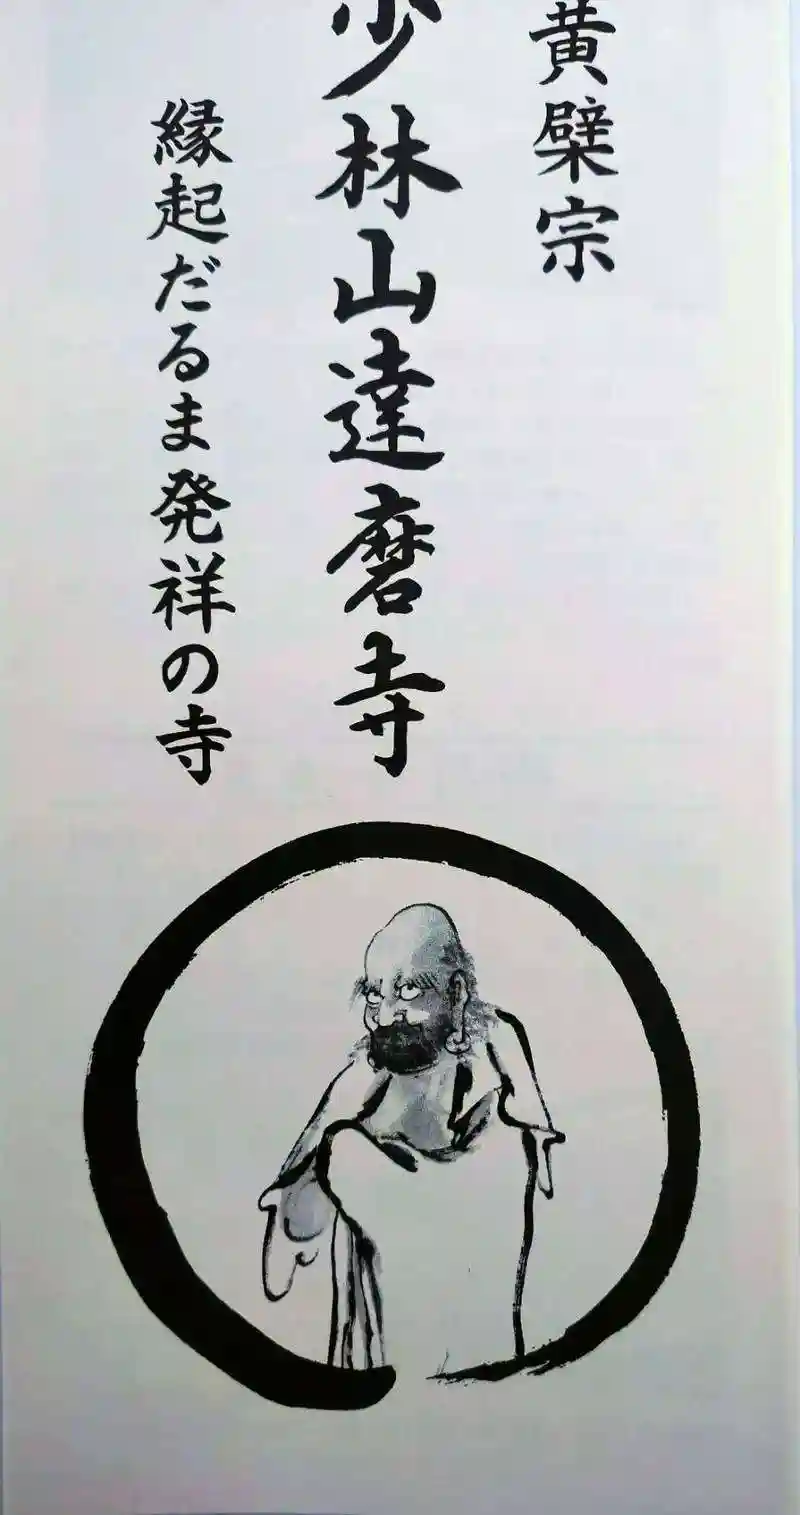 黄檗宗
少林山達磨寺
縁起だるま発祥の寺